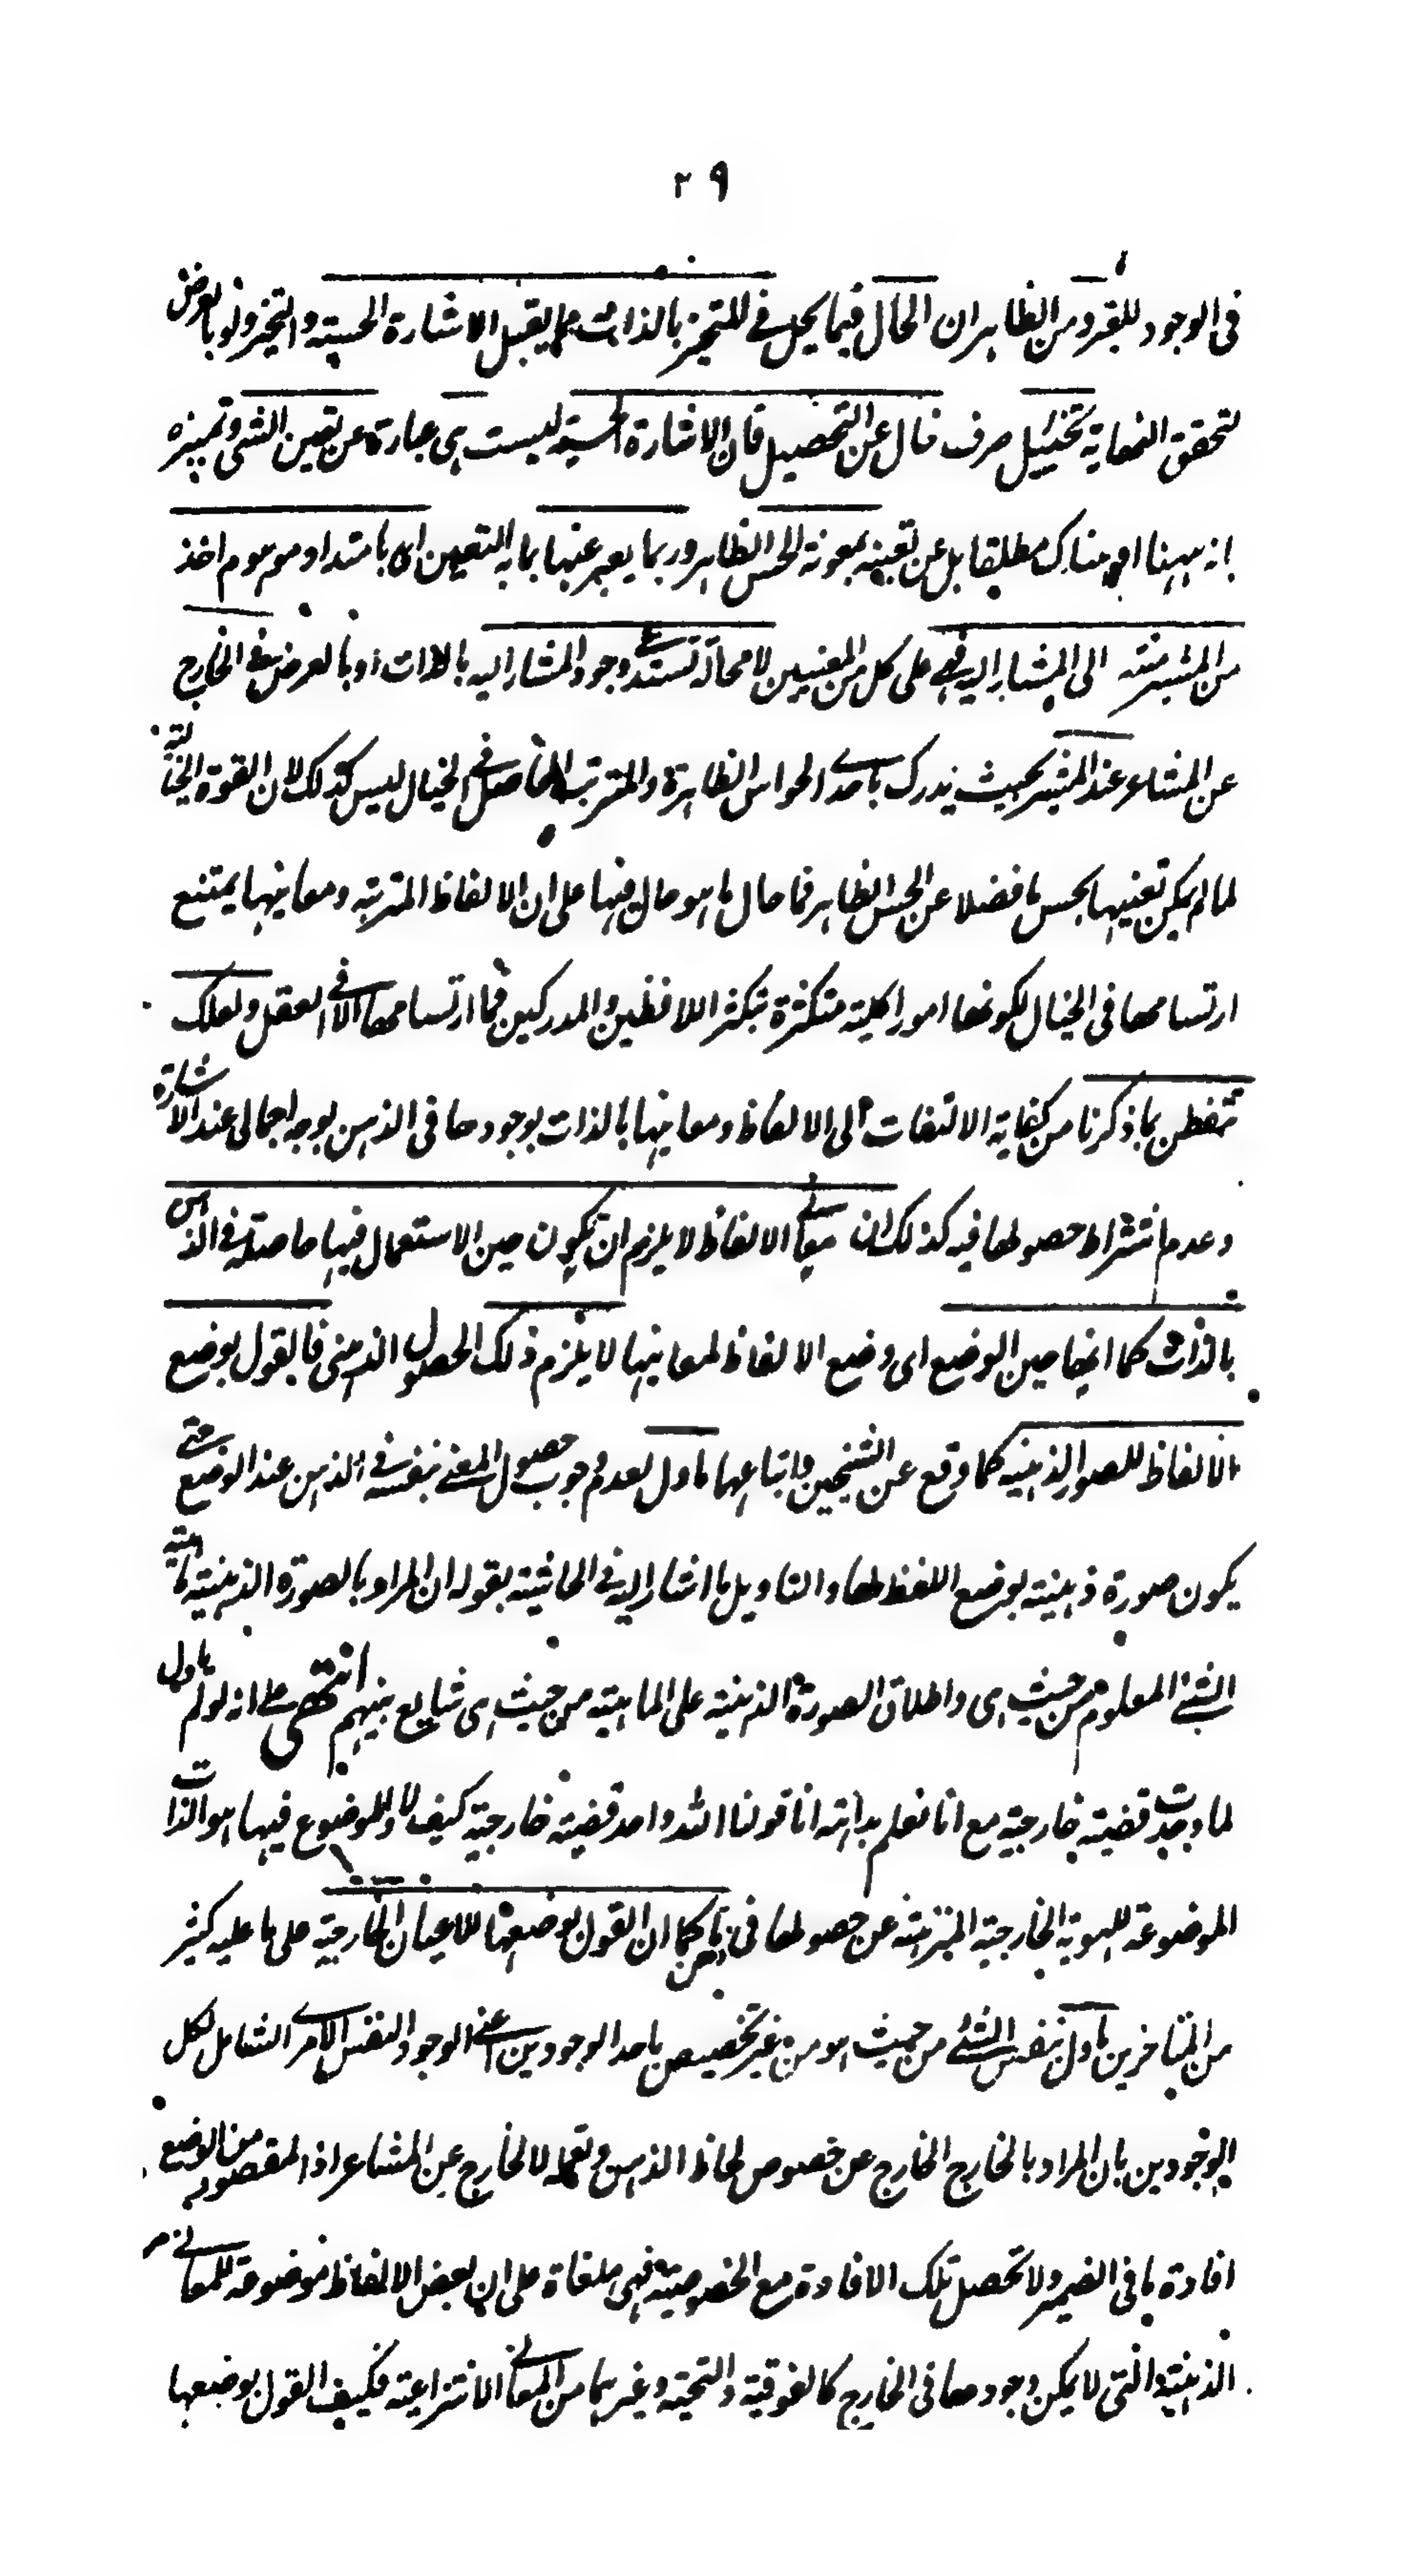 ٢٩
فى الوجود للبقر ومن الظاهر ان الحال فيما يحل فى المتحيز بالذات مما يقبل الاشارة الحسية والتحيز ولو بالعرض
لتحقق النهاية تخييل صرف خال عن التحصيل فان الاشارة الحسية ليست هى عبارة عن تعين الشى وتميزه
انه ههنا او هناك مطلقا بل عن تعينه بمعونة الحس الظاهر وربما يعبر عنها بما به التعين اى بامتداد موهوم اخذ
من المشير منته الى المشار اليه فهى على كل من المعنيين لا محالة تستدعى وجود المشار اليه بالذات او بالعرض فى الخارج
عن المشاعر عند المشير بحيث يدرك باحدى الحواس الظاهرة والمترتب الحاصل فى الخيال ليس كذلك لان القوة الخيالية
لما لم يكن تعينها بحس ما فضلا عن الحس الظاهر فما حال ما هو حال فيها على ان الالفاظ المترتبة ومعانيها يمتنع
ارتسامها فى الخيال لكونها امورا كلية متكثرة بتكثر اللافظين والمدركين فما ارتسامها الا فى العقل ولعلك
تتفطن بما ذكرنا من كفاية الالتفات الى الالفاظ ومعانيها بالذات بوجودها فى الذهن بوجه اجمالى عند الاشارة
وعدم اشتراط حصولها فيه كذلك ان معانى الالفاظ لا يلزم ان تكون حين الاستعمال فيها حاصلة فى الذهن
بالذات كما انها حين الوضع اى وضع الالفاظ لمعانيها لا يلزم ذلك الحصول الذهنى فالقول بوضع
الالفاظ للصور الذهنية كما وقع عن الشيخين واتباعهما ماول لعدم وجوب حصول المعنى بنفسه فى الذهن عند الوضع حتى
يكون صورة ذهنية بوضع اللفظ لها والتاويل ما اشار اليه فى الحاشية بقوله ان المراد بالصورة الذهنية ماهية
الشئ المعلوم من حيث هى واطلاق الصورة الذهنية على الماهية من حيث هى شايع بينهم انتهى على انه لو لم ياول
لما وجدت قضية خارجية مع انا نعلم بداهة انا قولنا الله واحد قضية خارجية كيف لا والموضوع فيها هو الذات
الموضوعة للهوية الخارجية المنزهة عن حصولها فى ذهن كما ان القول بوضعها للاعيان الخارجية على ما عليه كثير
من المتاخرين ماول بنفس الشئ من حيث هو من غير تخصيص باحد الوجودين اعنى الوجود النفس الامرى الشامل لكل
الوجودين بان المراد بالخارج الخارج عن خصوص لحاظ الذهن وتعمله لا الخارج عن المشاعر اذ المقصود من الوضع
افادة ما فى الضمير ولا تحصل تلك الافادة مع الخصوصية فهى ملغاة على ان بعض الالفاظ موضوعة للمعانى
الذهنية والتى لا يمكن وجودها فى الخارج كالفوقية والتحتية وغيرهما من المعانى الانتزاعية فكيف القول بوضعها